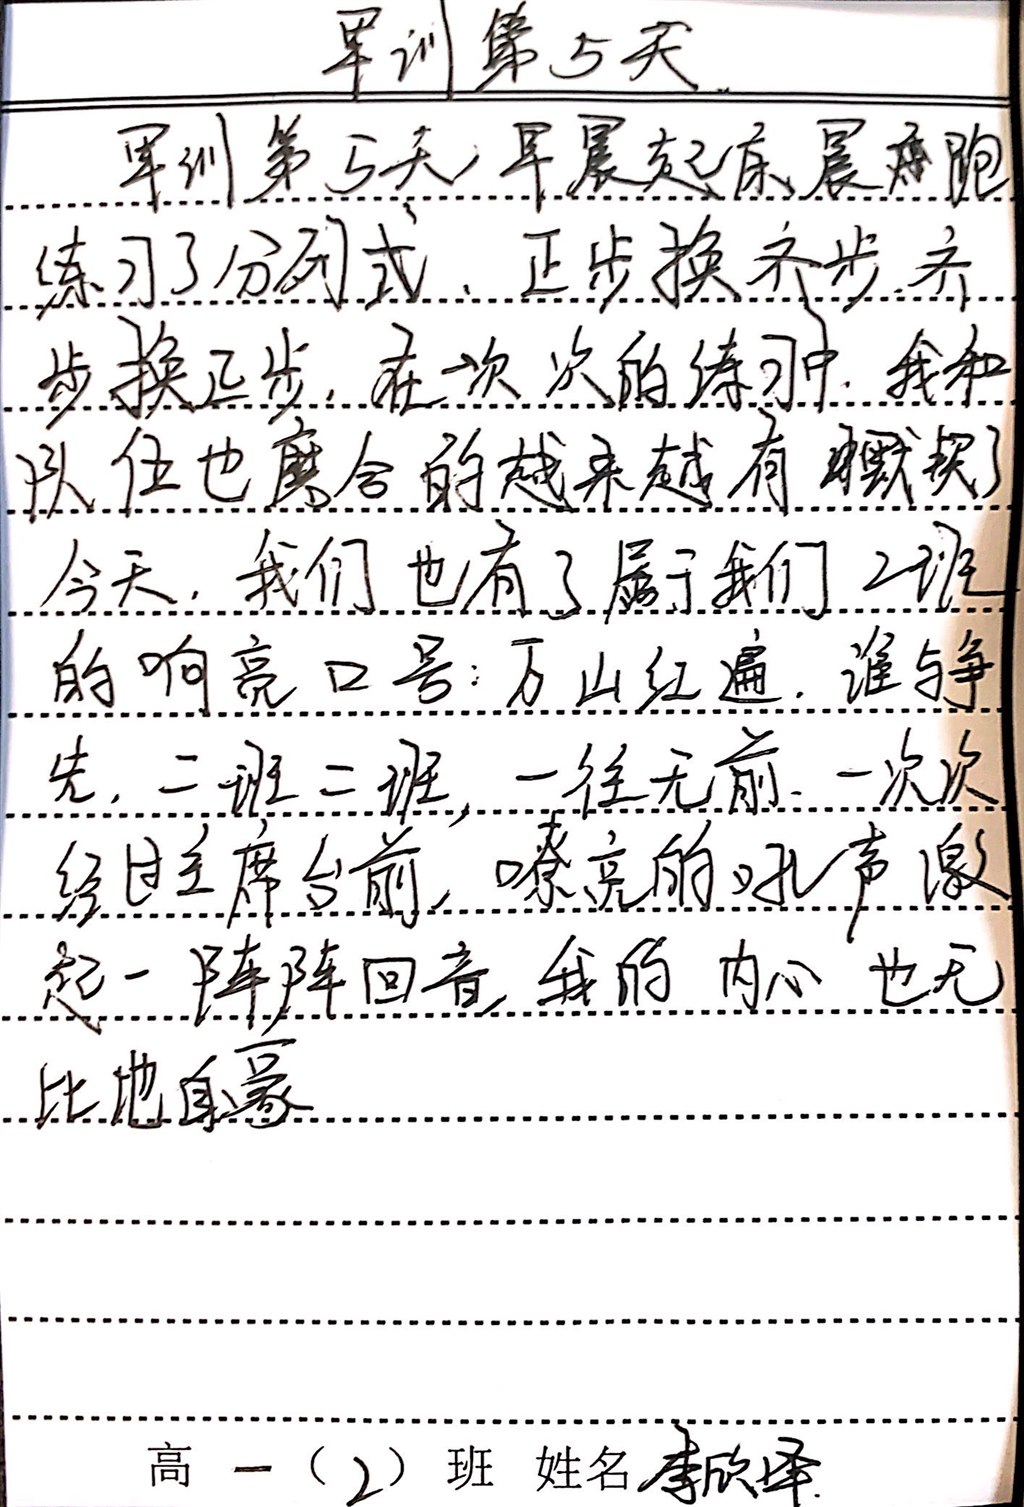 军训第5天
军训第5天,早晨起床,晨跑
练习了分列式,正步换齐步,齐
步换正步,在一次次的练习中,我和
队伍也磨合的越来越有默契了
今天,我们也有了属于我们2班
的响亮口号:万山红遍,谁与争
先,二班二班,一往无前.一次次
经过主席台前,嘹亮的吼声激
起一阵阵回音,我的内心也无
比地自豪
高一(2)班 姓名李欣泽